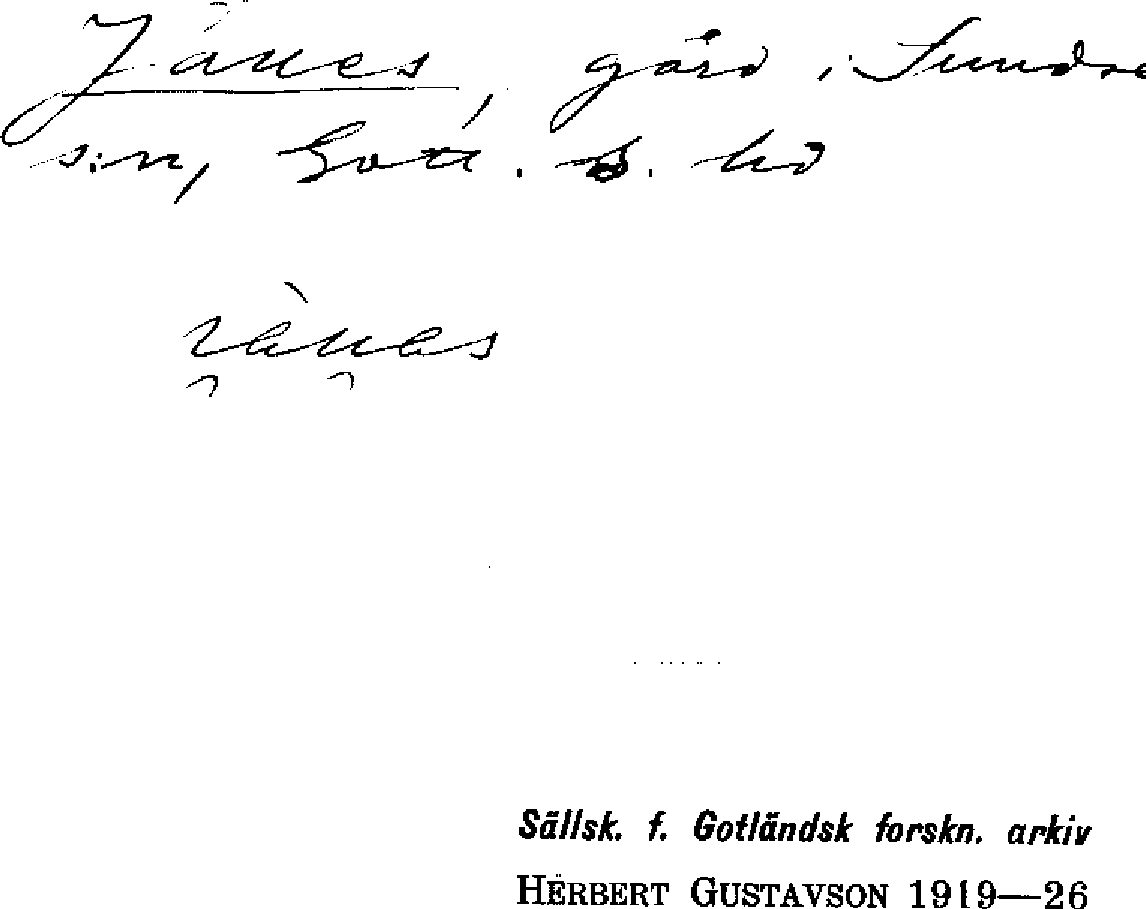 Jäues, gård i Sundre
s:n, Gotl. S. hd
Sällsk. f. Gotländsk forskn. arkiv
HERBERT GUSTAVSON 1919—26